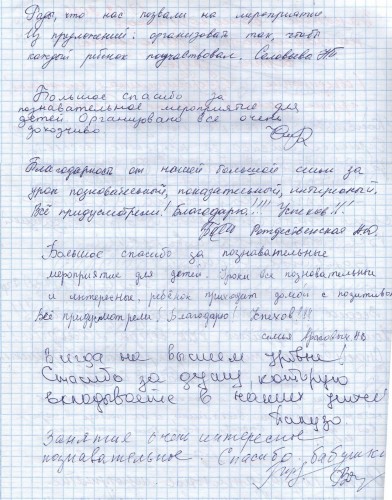 Рада, что нас позвали на мероприятие.
Из предложений: организовать так, чтобы
каждый ребенок поучаствовал. Соловьева
Большое спасибо за
познавательное мероприятие для
детей Организовано все очень
доходчиво
Благодарность от нашей большой семьи за
урок познавательный, показательный, интересный.
Всё предусмотрели! Благодарю!!!! Успехов!!!
Рождественская
Большое спасибо за познавательные
мероприятие для детей. Уроки все познавательные
и интересные, ребёнок приходит домой с позитивом
Всё предусмотрели! Благодарю! Успехов!!!
семья
Всегда на высшем уровне!
Спасибо за душу, которую
вкладываете в наших
Занятия очен интересное
познавательное. Спасибо. бабушка